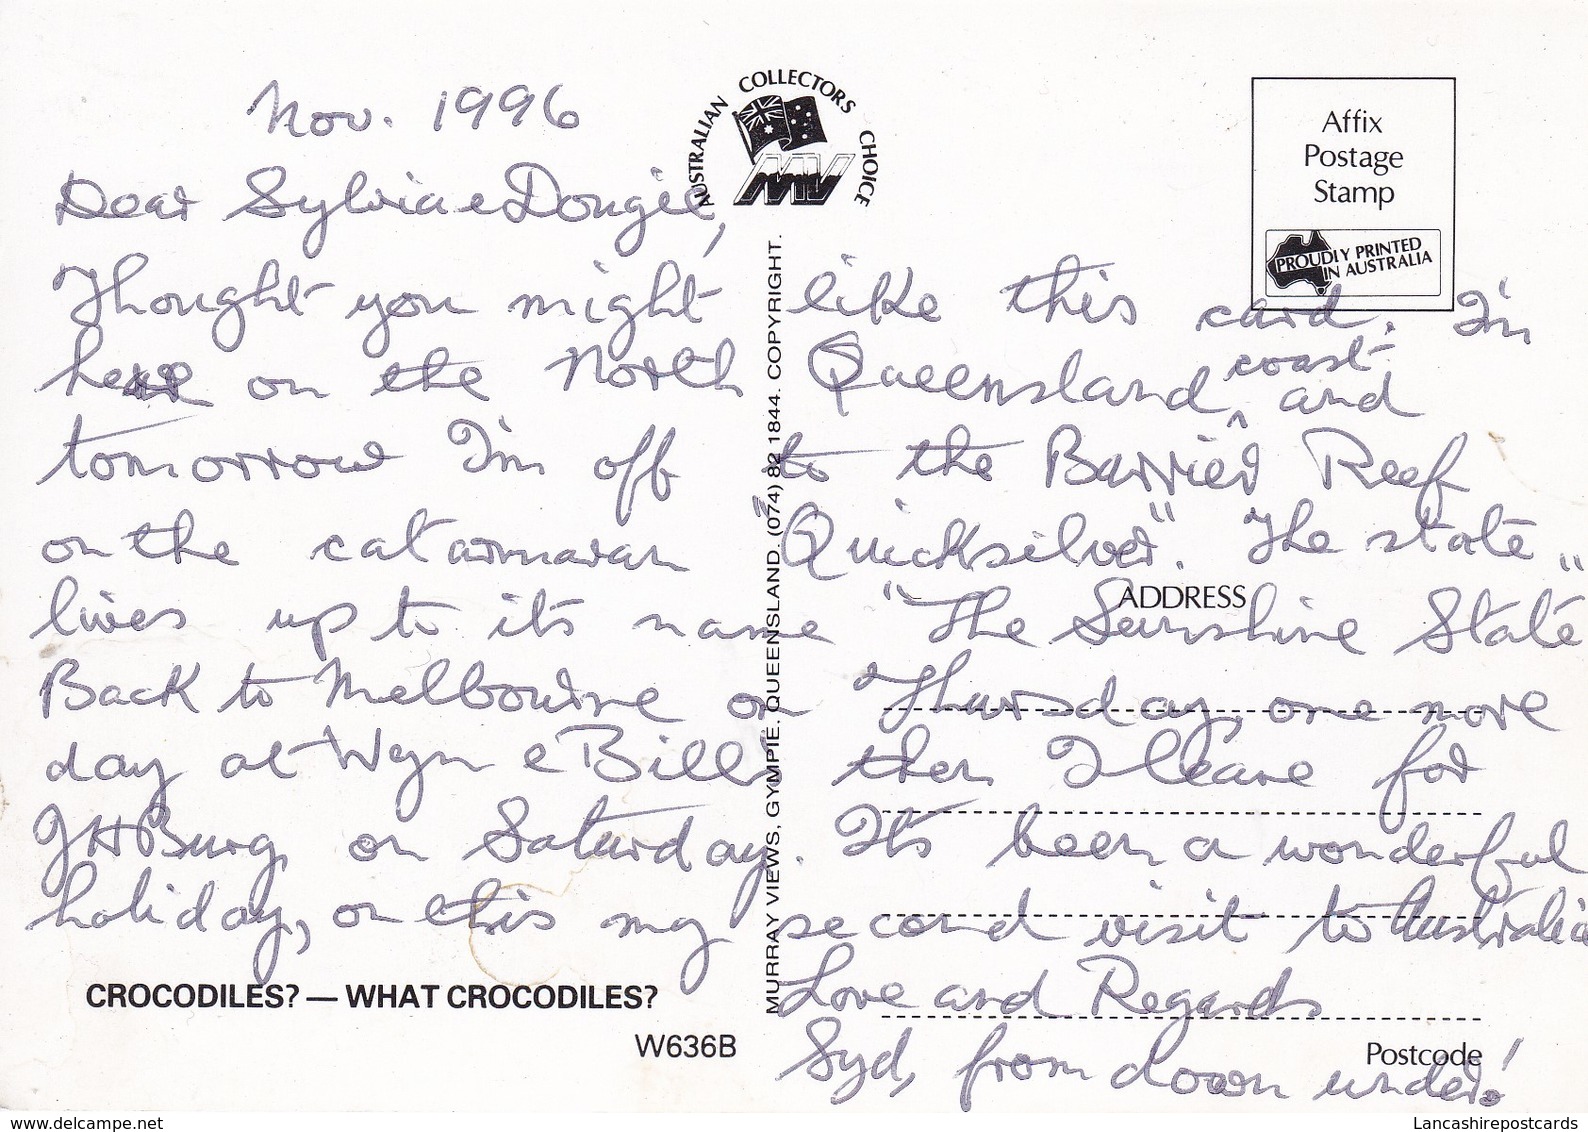 Nov. 1996
AUSTRALIAN COLLECTORS CHOICE
MV
Affix
Postage
Stamp
PROUDLY PRINTED
IN AUSTRALIA
Dear Sylvia e Dougie,
Thought you might like this card. I'm
here on the North Queensland coast and
tomorrow I'm off to the Barrier Reef
on the catarmaran "Quicksilver". The state
lives up to its name "The Sunshine State"
Back to Melbourne on Thursday, one more
day at Wyn e Bill, then I leave for
JHBurg on Saturday. It's been a wonderful
holiday, on this my second visit to Australia
Love and Regards
Syd, from down under!
CROCODILES? — WHAT CROCODILES?
W636B
MURRAY VIEWS, GYMPIE. QUEENSLAND. (074) 82 1844. COPYRIGHT.
ADDRESS
Postcode
www.delcampe.net
Lancashirepostcards